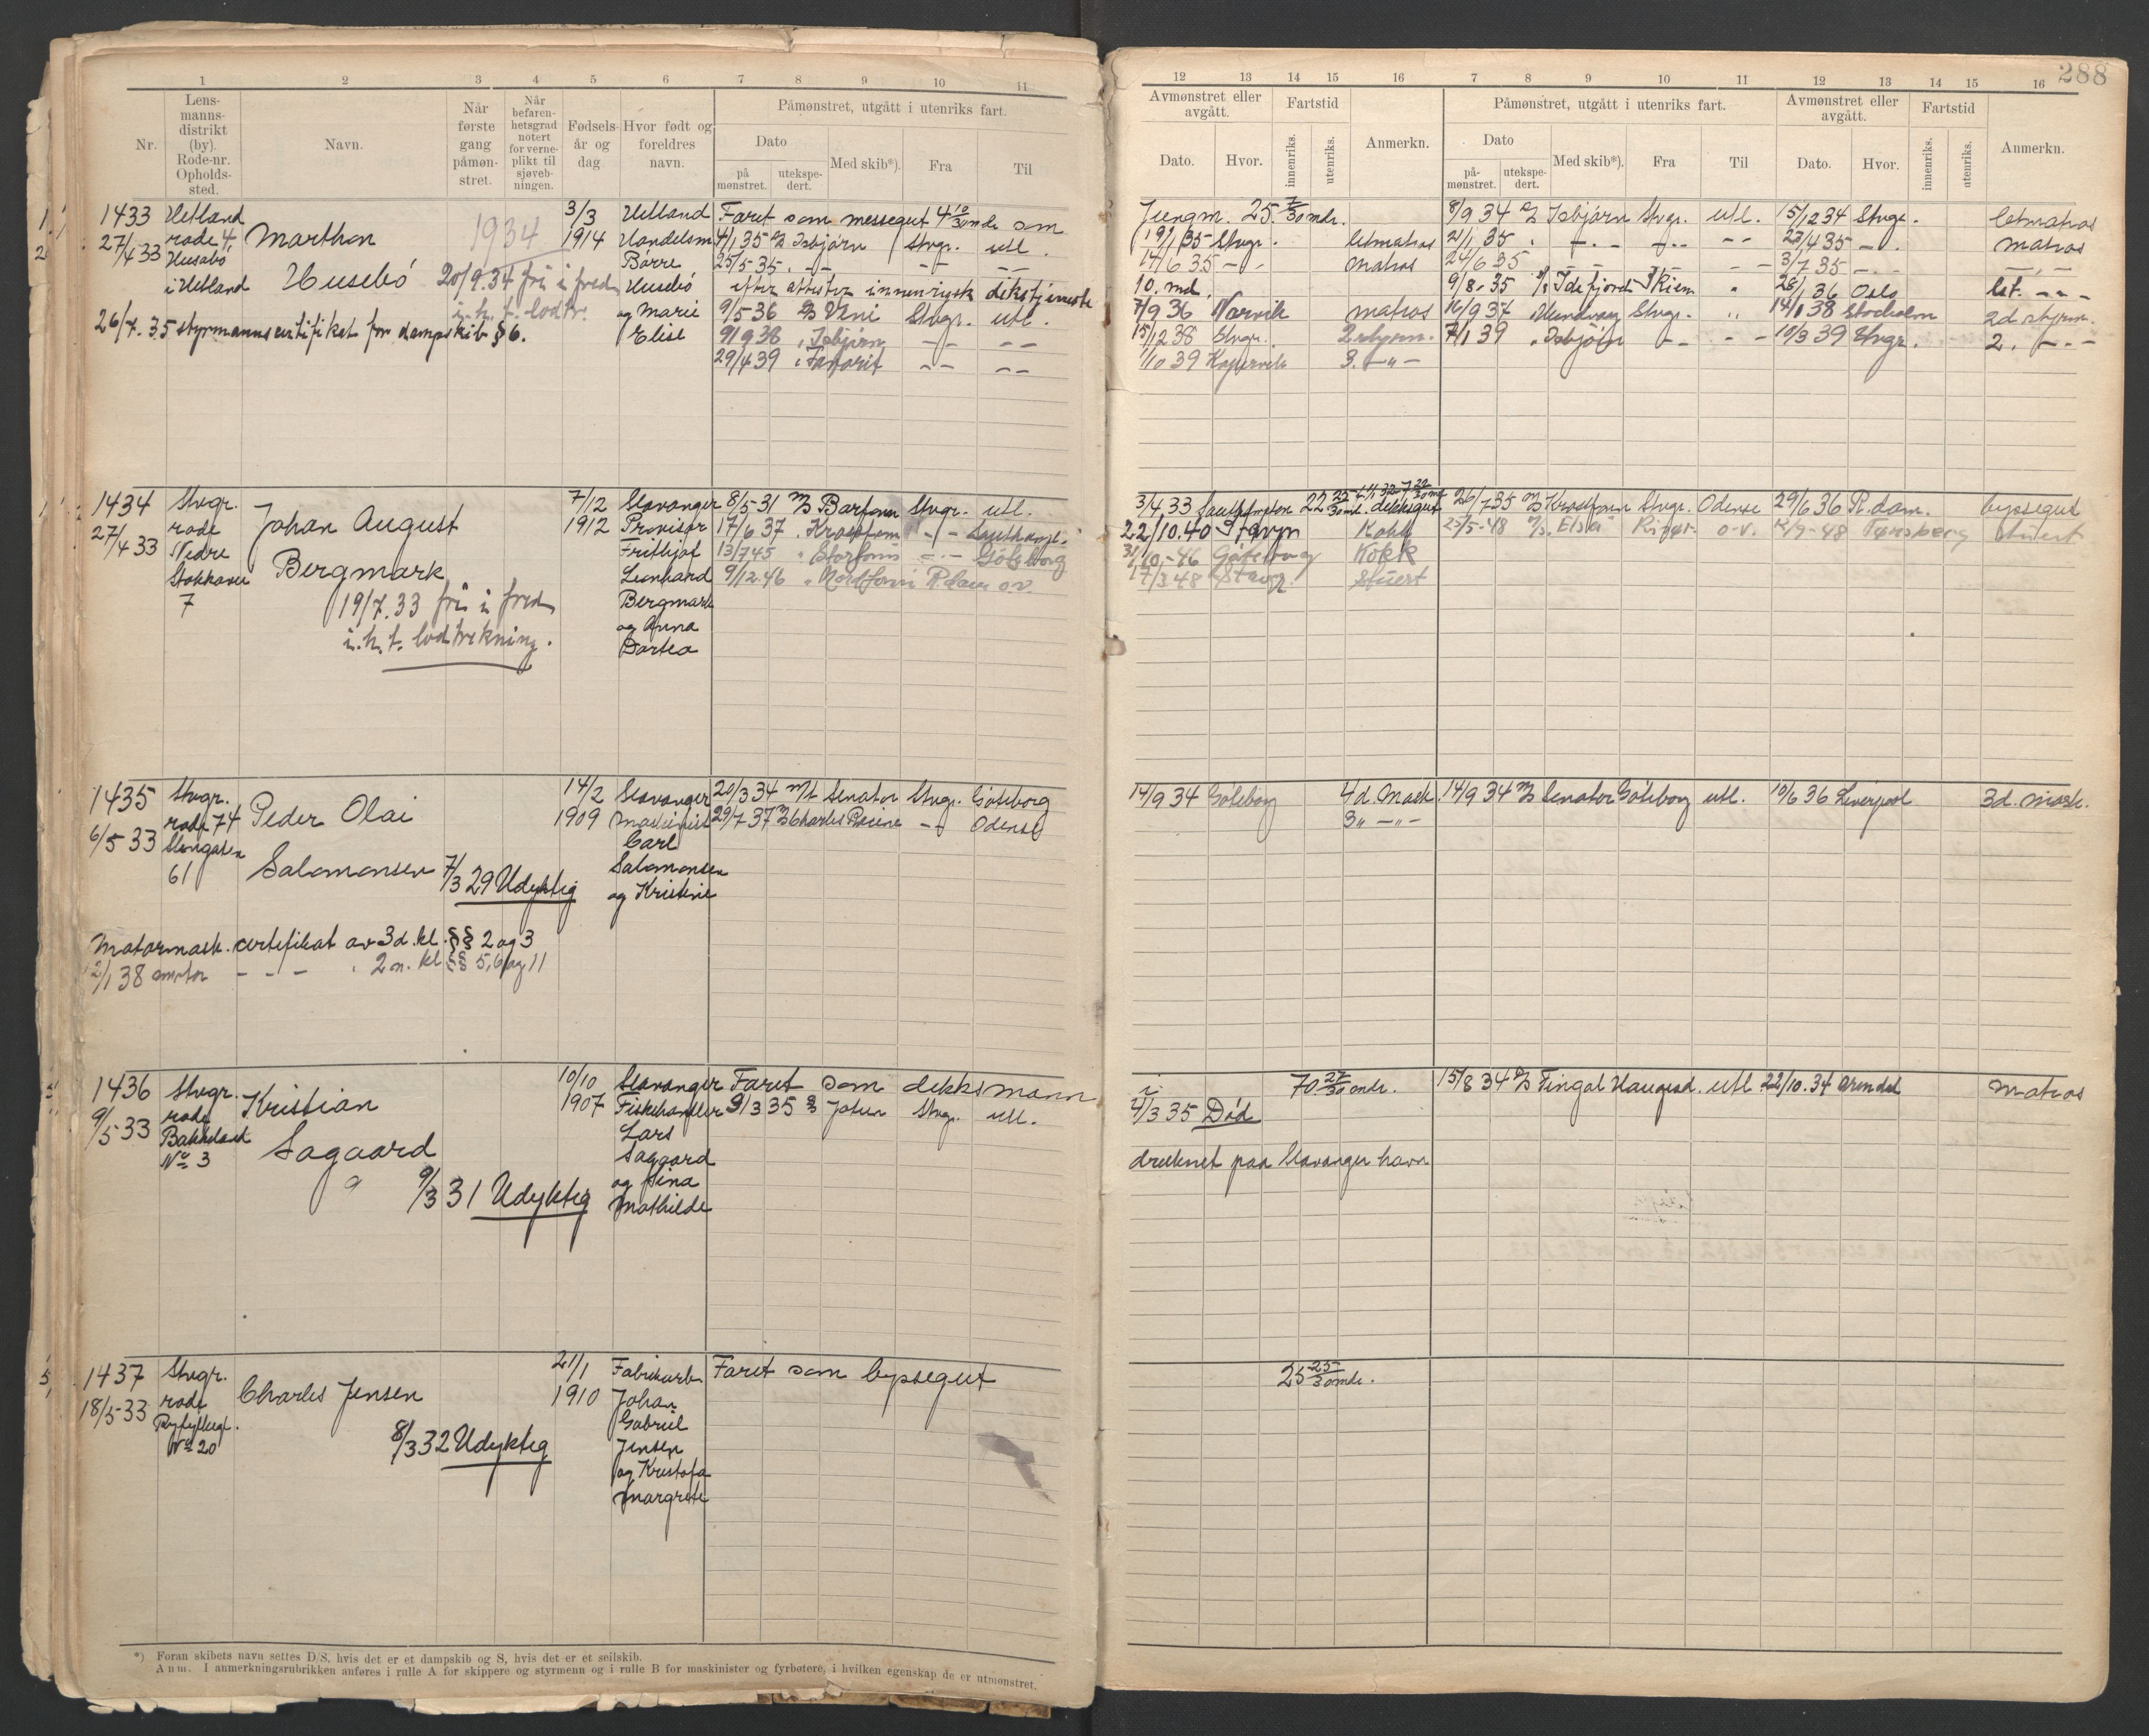 1 2 3 4 5 6 7 8 9 10 11
Nr.
Lens-
manns-
distrikt
(by).
Rode-nr.
Opholds-
sted.
Navn.
Når
første
gang
påmøn-
stret.
Når
befaren-
hetsgrad
notert
for verne-
plikt til
sjøveb-
ningen.
Fødsels-
år og
dag
Hvor født og
foreldres
navn.
Påmønstret, utgått i utenriks fart.
Dato
på
mønstret.
utekspe-
dert.
Med skib*).
Fra
Til
1433
27/4 33
Hetland
rode 4.
Husabø
i Hetland
Marthon
Husebø
1934
20/9.34 fri i fred
i. h. t. lodtr.
26/7. 35 styrmannscertifikat for dampskib § 6.
3/3
1914
Hetland
Handelsm
Børre
Husebø
og Marie
Elise
Faret som messegut 4 10/30 mdr som
4/1 35 D/S Isbjørn Stvgr. utl.
25/5-35. - - - - - -
efter attester innenrigsk dekstjeneste
9/5-36 D/S Veni Stvgr. utl.
9/9 38 " Isbjørn - - - -
29/4 39 " Favorit - - - -
1434
27/4 33
Stvgr.
rode
Nedre
Stokkavei
7
Johan August
Bergmark
19/7. 33 fri i fred
i. h. t. lodtrekning.
7/12
1912
Stavanger
Provisor
Frithjof
Leonhard
Bergmark
og Anna
Dortea
8/5-31 M/S Barfonn Stvgr. utl.
17/6 37 " Krossfonn - - Southampt.
13/7 45 " Storfonn - - Göteborg
9/12.46 " Nordfonn R.dam o.v.
1435
6/5 33
Stvgr.
rode 74
61
Peder Olai
Salomonsen
7/3 29 Udyktig
14/2
1909
Stavanger
Maskinist
Carl
Salomonsen
og Kristine
20/3 34 M/T Senator Stvgr. Göteborg
29/7 37 M/S Charles Racine - - Odense
Motormask. certifikat av 3d. kl. §§ 2 og 3
12/1 38 motor - - - " 2n. kl §§ 5, 6 og 11
1436
9/5-33
Stvgr.
rode
Bakkeland
No 3
Kristian
Sagaard
9/3 31 Udyktig
10/10
1907
Stavanger
Fiskehandler
Lars
Sagaard
og Sina
Mathilde
Faret som dekksmann
9/3 35 D/S Jotun Stvgr. utl.
1437
18/5-33
Stvgr.
rode
Ryfylkegt.
No 20
Charles Jensen
8/3 32 Udyktig
21/1
1910
Fabrikarb.
Johan
Gabriel
Jensen
og Kristofa
Margrete
Faret som byssegut
*) Foran skibets navn settes D/S, hvis det er et dampskib og S, hvis det er et seilskib.
Anm. I anmerkningsrubrikken anføres i rulle A for skippere og styrmenn og i rulle B for maskinister og fyrbøtere, i hvilken egenskap de er utmønstret.
288
12 13 14 15 16 7 8 9 10 11 12 13 14 15 16
Avmønstret eller
avgått.
Dato.
Hvor.
Fartstid
innenriks.
utenriks.
Anmerkn.
Påmønstret, utgått i utenriks fart.
Dato
på-
mønstret.
utekspe-
dert.
Med skib*).
Fra
Til
Avmønstret eller
avgått.
Dato.
Hvor.
Fartstid
innenriks.
utenriks.
Anmerkn.
Jungm. 25 7/30 mdr. 8/9 34 D/S Isbjørn Stvgr. utl. 15/12 34 Stvgr. letmatros
19/1 35 Stvgr. letmatros 21/1 35 " - - - - - - 23/4 35 - - matros
14/6 35 - - matros 24/6 35 - - - - - - 3/7 35 - - - " -
10. md. 9/8-35 D/S Idefjord Skien " 28/1 36 Oslo let. - " -
7/9 36 Narvik matros 16/9 37 " Hundvaag Stvgr. " 14/1 38 Stockholm 2d styrm.
15/12 38 Stvgr. 2 styrm. 7/1 39 " Isbjørn - - - - 10/3 39 Stvgr. 2. - " -
1/10 39 Kopervik 3. - " -
3/4 33 Southampton 22 dekksgut 26/7 35 M/S Krossfonn Stvgr. Odense 29/6 36 R.dam. byssegut
22/10.40 Stavgr Kokk 25/5-48 M/S "Elsa" Risør o.v. 12/9-48 Tønsberg stuert
31/10-46 Göteborg Kokk
17/3 48 Stavgr. Stuert
14/9 34 Göteborg 4d. Mask. 14/9 34 M/S Senator Göteborg utl. 10/6 36 Liverpool 3d. Mask.
3 " - " -
i 70 27/30 mdr. 15/8 34 D/S Fingal Haugesd. utl 22/10.34 Arendal matros
4/3 35 Død
druknet paa Stavanger havn
25 25/30 mdr.